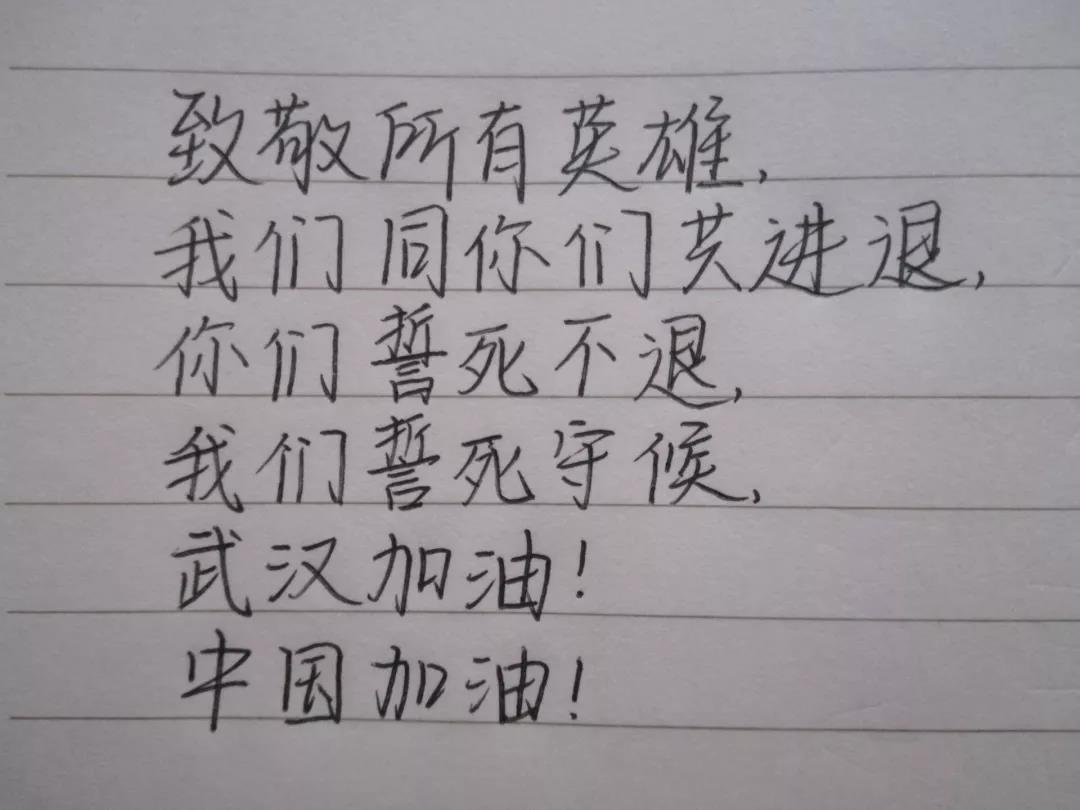 致敬所有英雄,
我们同你们共进退,
你们誓死不退,
我们誓死守候,
武汉加油!
中国加油!